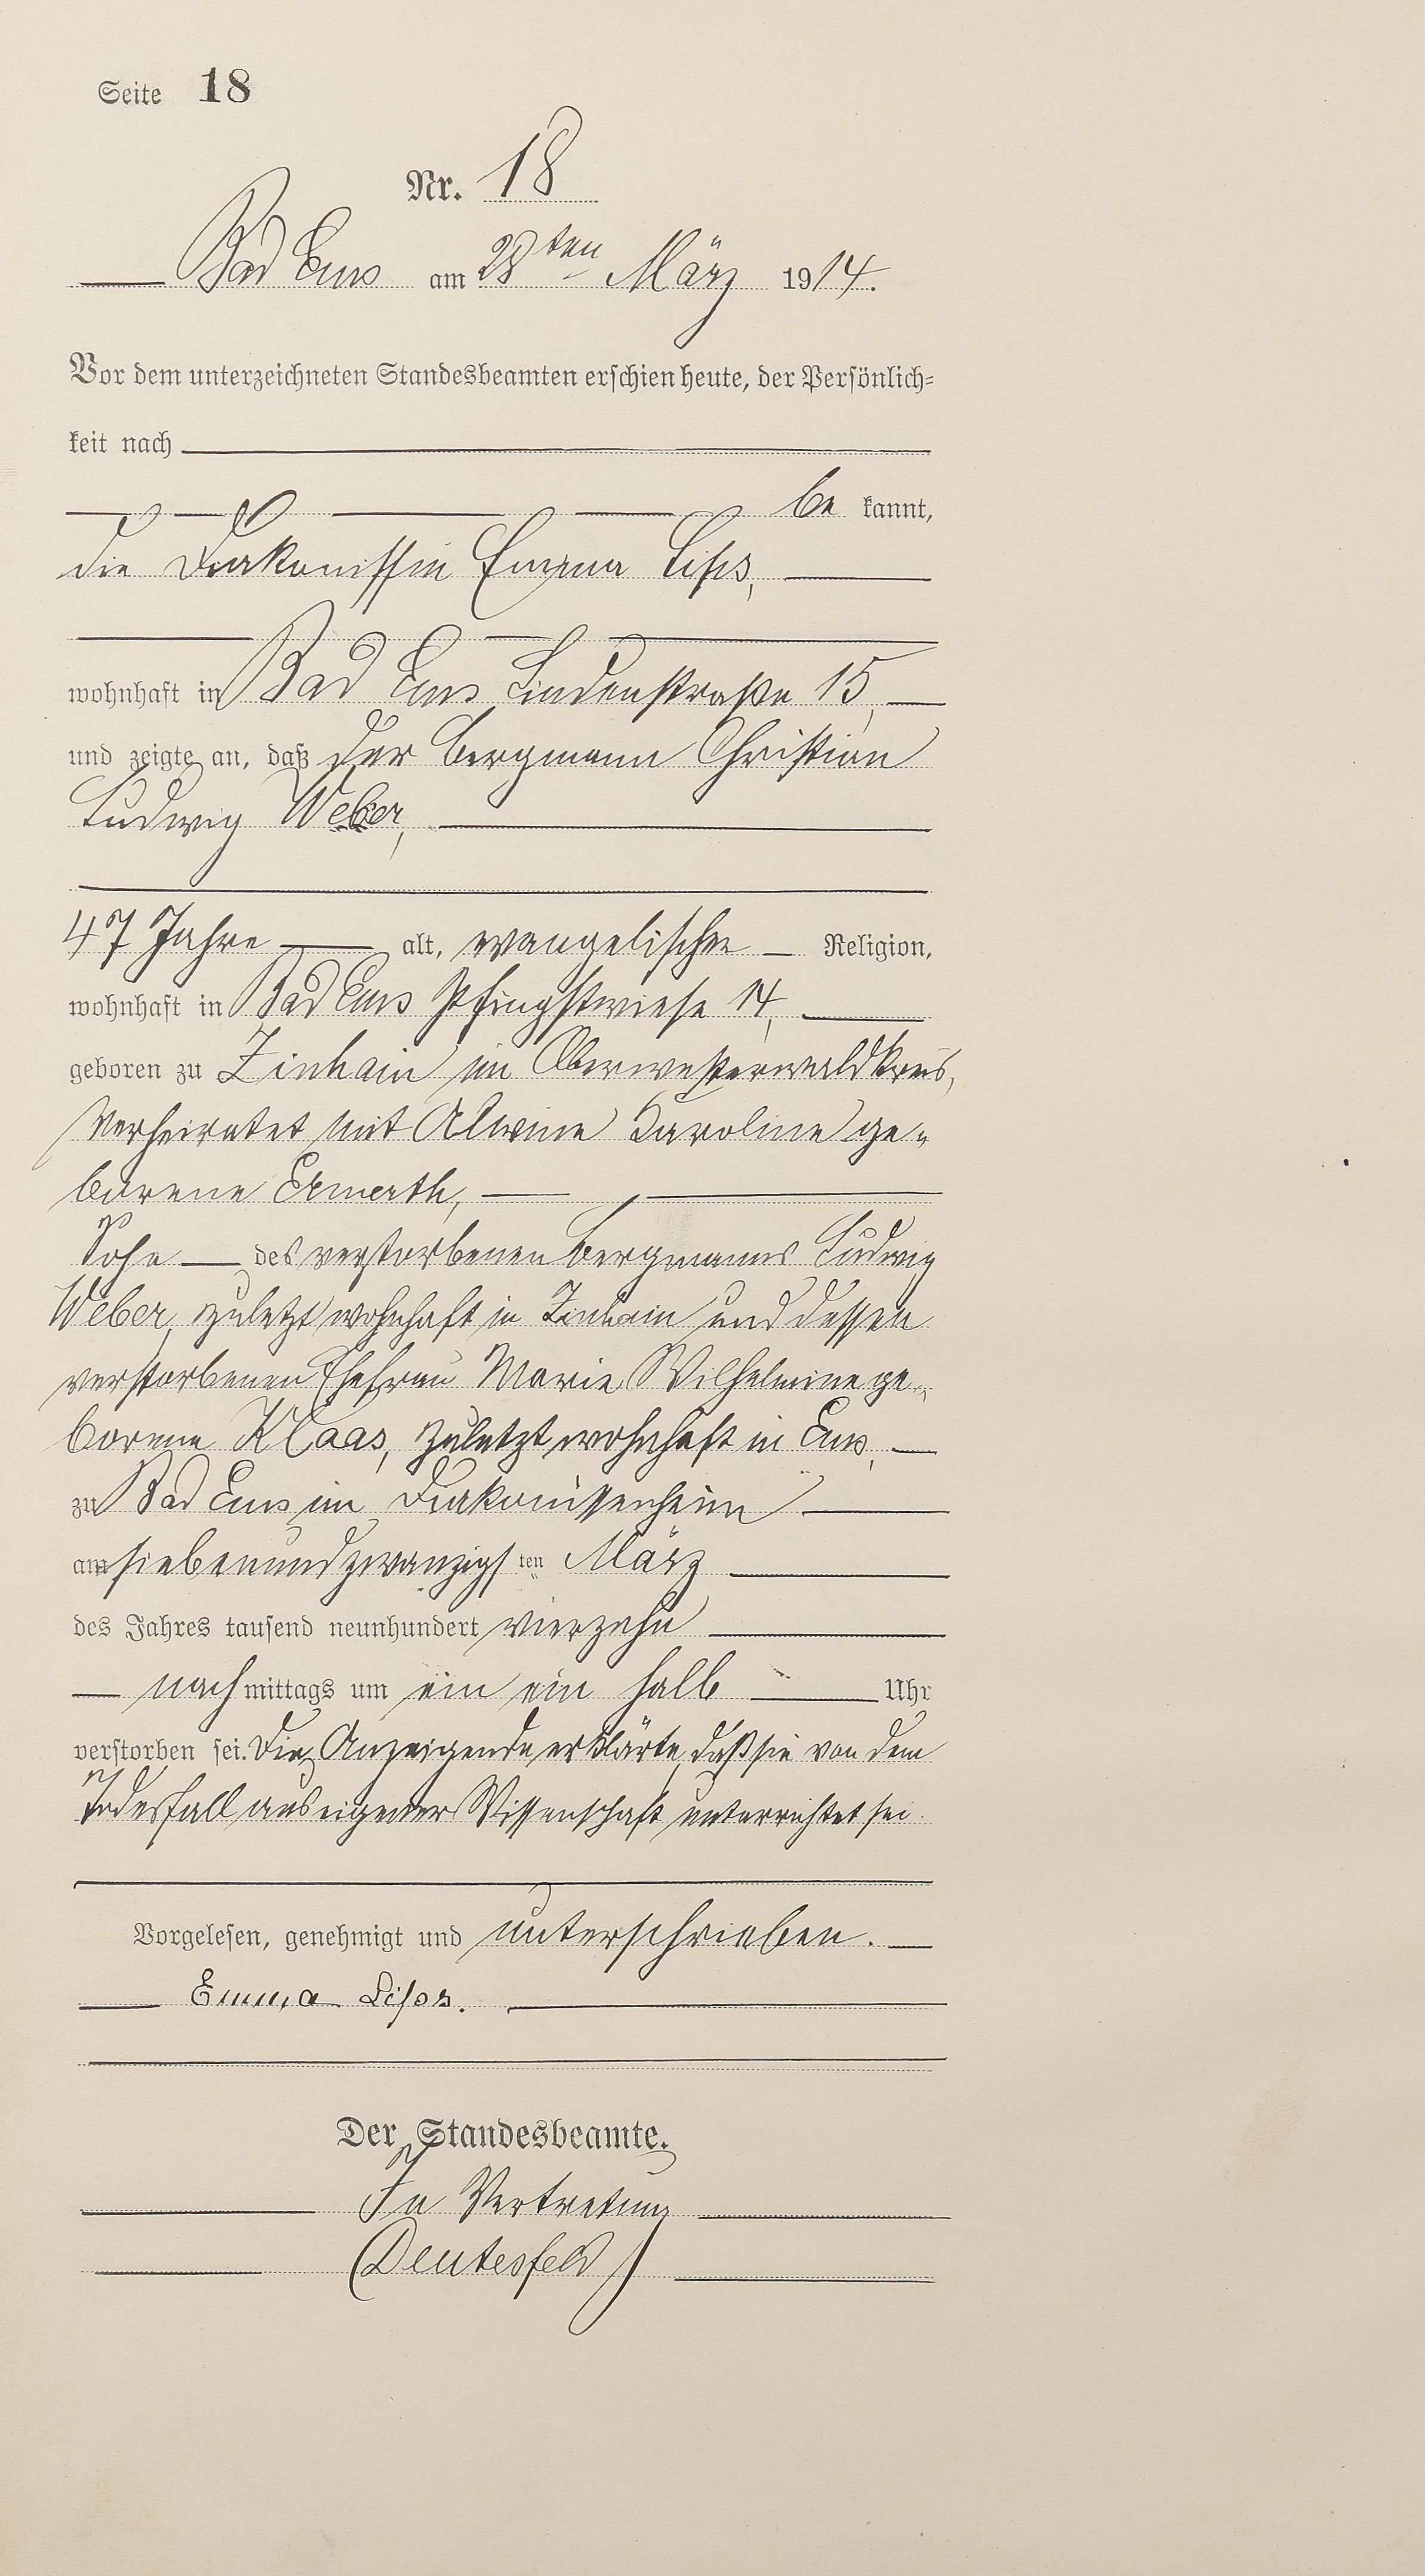 Seite 18
Nr. 18
Bad Ems am 28ten März 1914.
Vor dem unterzeichneten Standesbeamten erschien heute, der Persönlich-
keit nach
be kannt,
die Diakonissin Emma Lips,
wohnhaft in Bad Ems Lindenstraße 15,
und zeigte an, daß der Bergmann Christian
Ludwig Weber,
47 Jahre alt, evangelischer Religion,
wohnhaft in Bad Ems Pfingstwiese 14,
geboren zu Zinhain im Oberwesterwaldkreis,
verheiratet mit Alwine Karoline ge-
borene Ermerth,
Sohn des verstorbenen Bergmanns Ludwig
Weber, zuletzt wohnhaft in Zinhain und dessen
verstorbenen Ehefrau Marie Wilhelmine ge-
borene Klaas, zuletzt wohnhaft in Ems,
zu Bad Ems im Diakonissenheim
am siebenundzwanzigsten März
des Jahres tausend neunhundert vierzehn
nachmittags um ein ein halb Uhr
verstorben sei. Die Anzeigende erklärte, daß sie von dem
Todesfall aus eigener Wissenschaft unterrichtet sei.
Vorgelesen, genehmigt und unterschrieben.
Emma Lips.
Der Standesbeamte.
In Vertretung
(Deutesfeld)